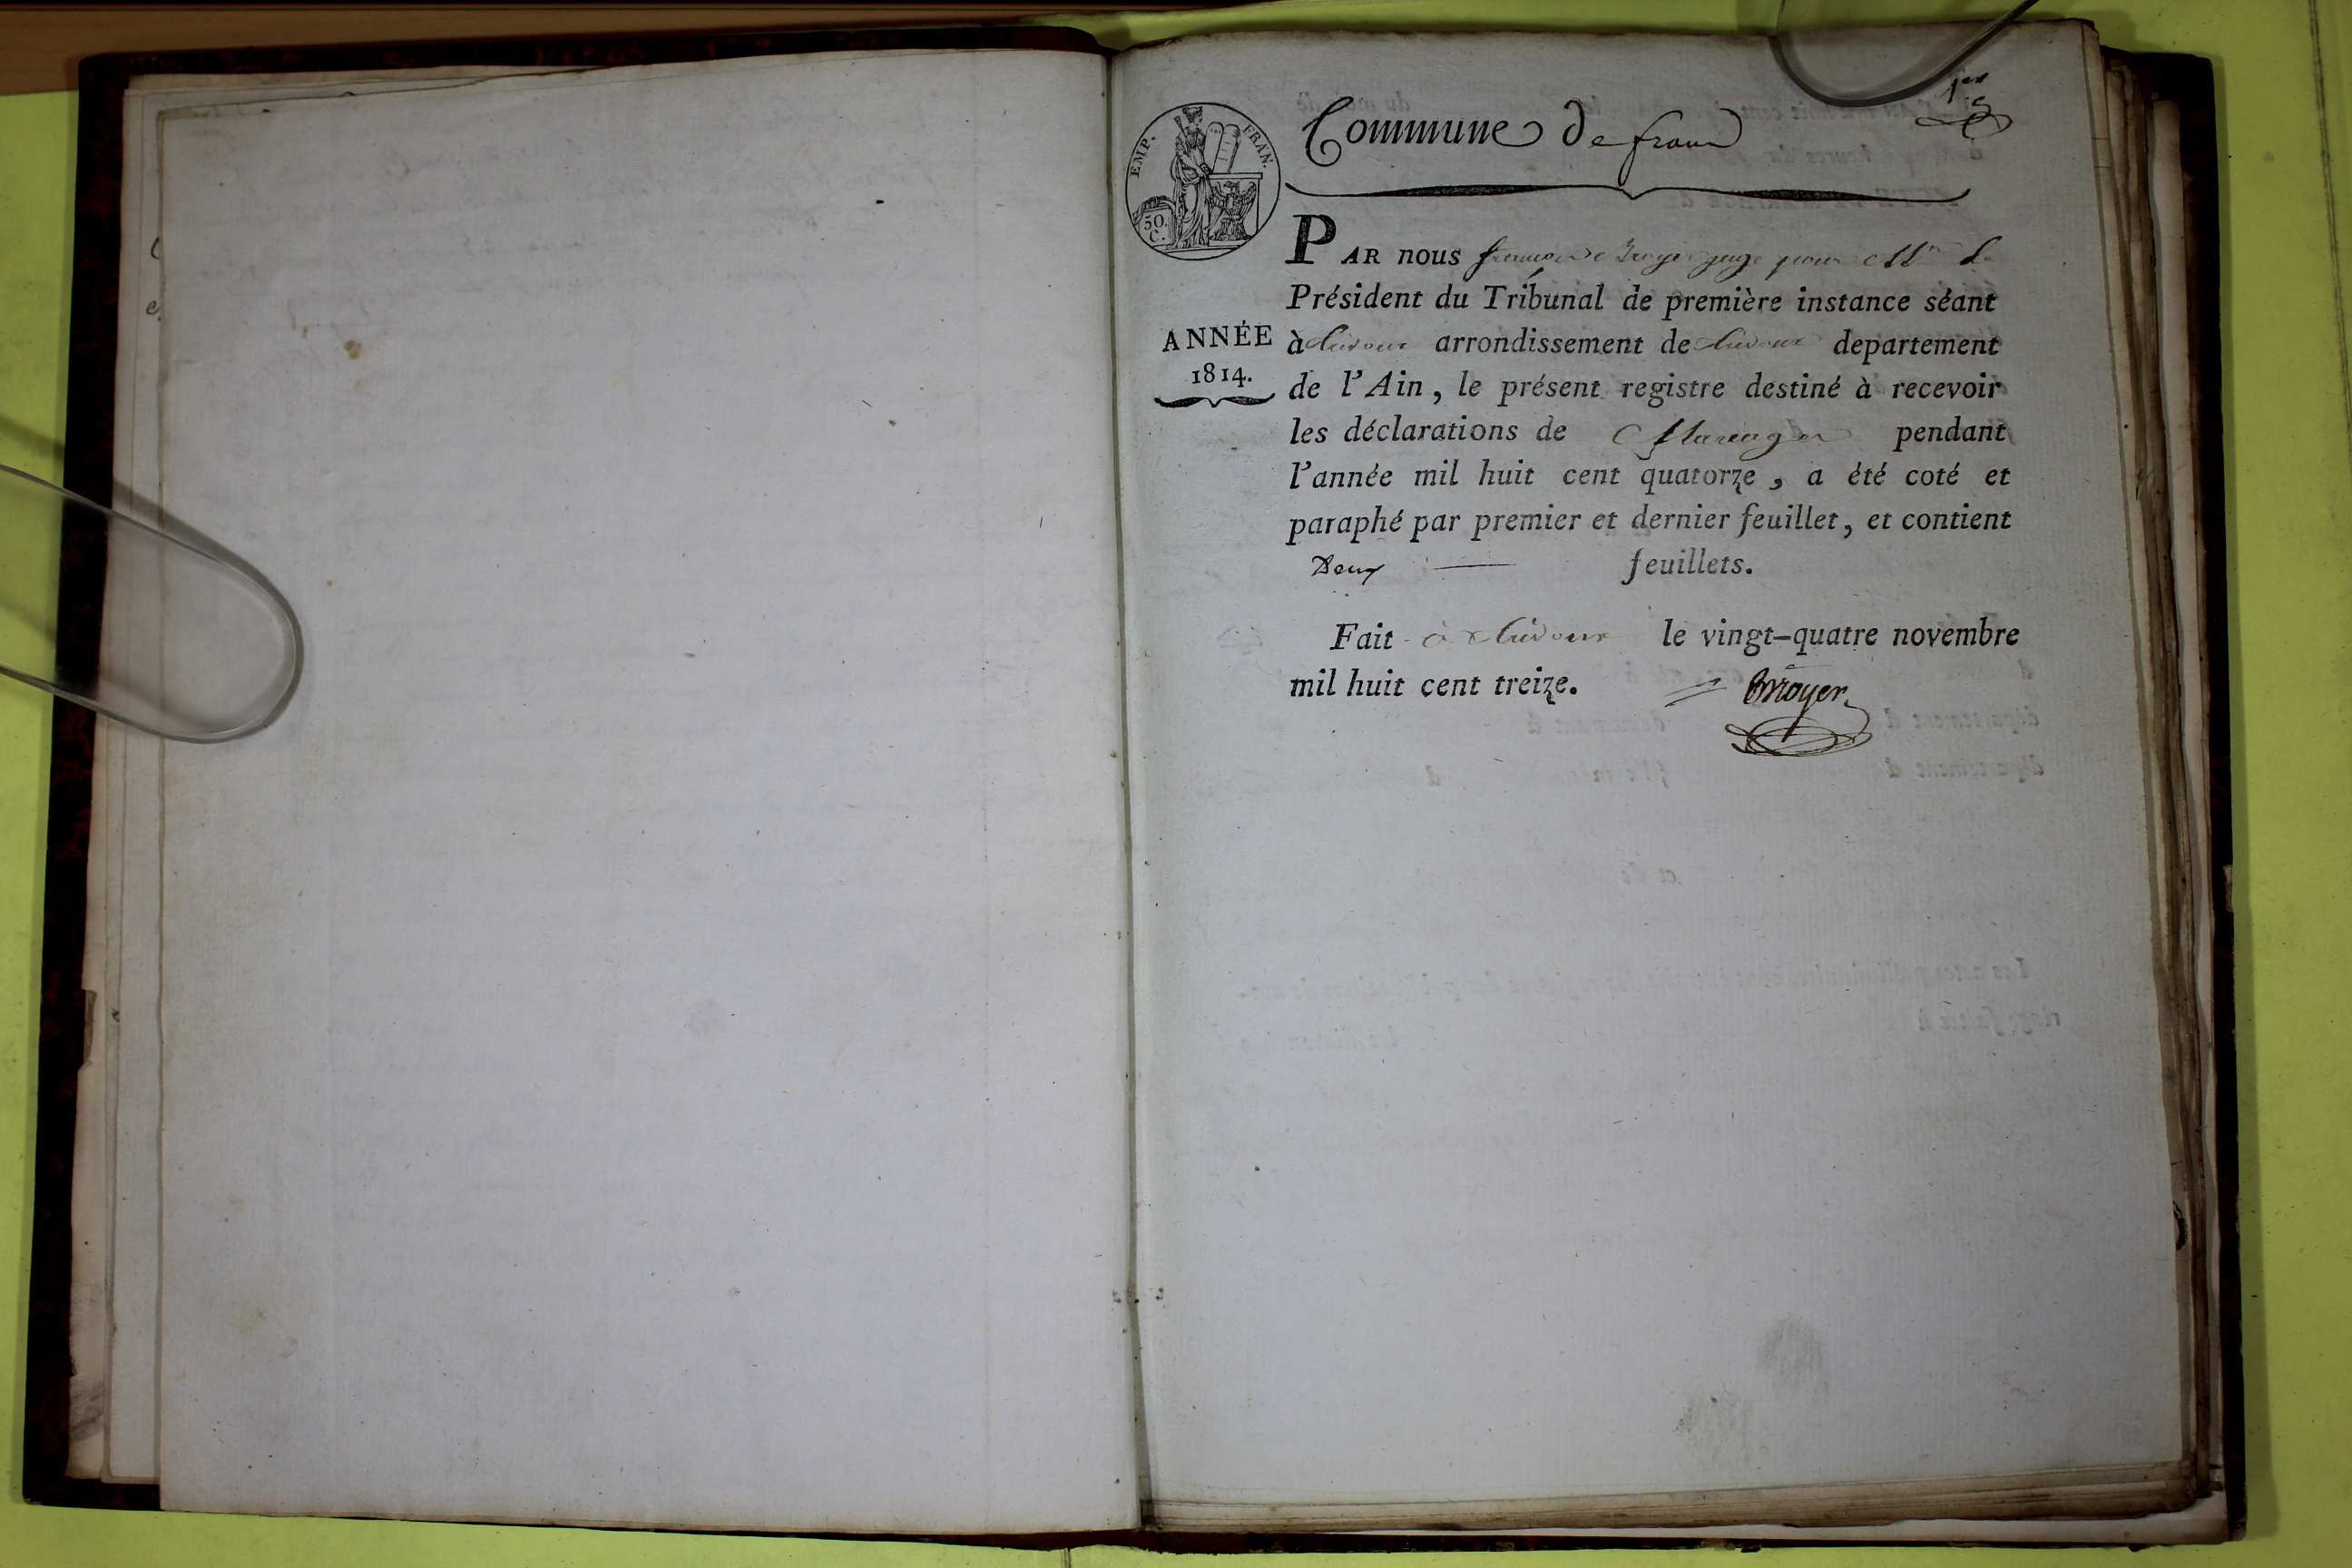 1er
Commune de frans
EMP. FRAN.
50. C.
PAR nous françois Broyer juge pour Mr le
Président du Tribunal de première instance séant
à Trévoux arrondissement de Trévoux departement
ANNÉE
1814.
de l'Ain, le présent registre destiné à recevoir
les déclarations de Mariages pendant
l'année mil huit cent quatorze, a été coté et
paraphé par premier et dernier feuillet, et contient
Deux feuillets.
Fait à Trévoux le vingt-quatre novembre
mil huit cent treize.
Broyer